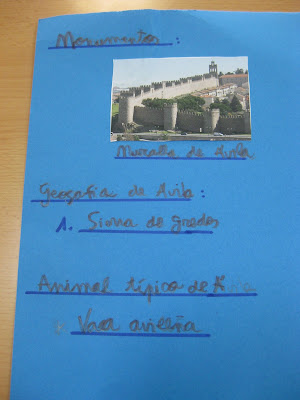 Monumentos:
Muralla de Avila
Geografia de Avila:
1. Sierra de gredos
Animal típico de
Vaca avileña